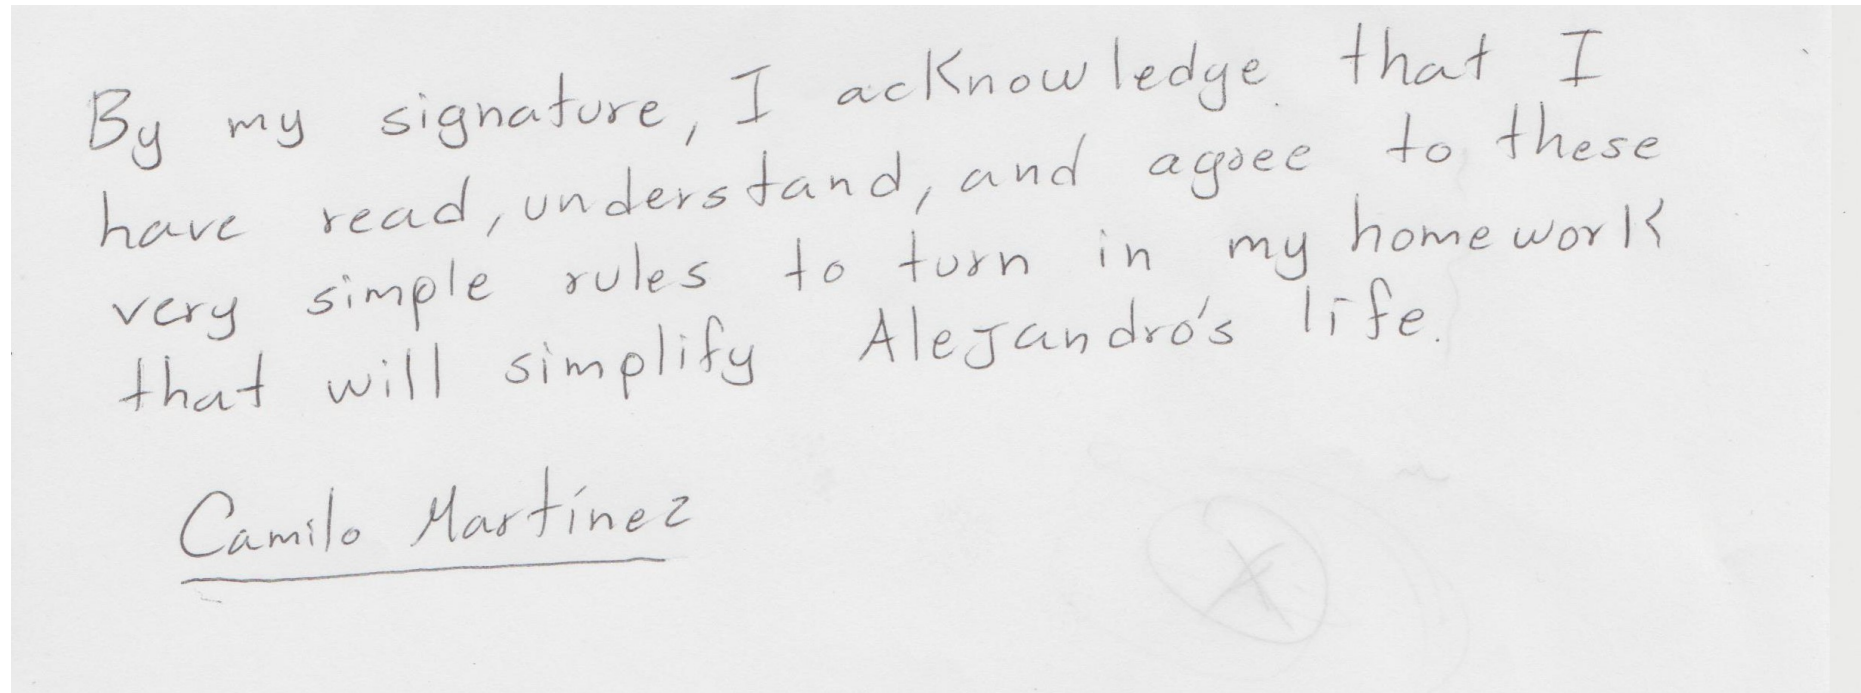 By my signature, I acknowledge that I
have read, understand, and agree to these
very simple rules to turn in my homework
that will simplify Alejandro's life.
Camilo Martínez